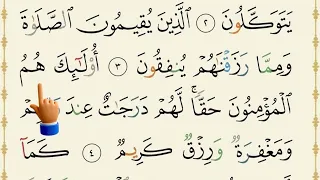 يَتَوَكَّلُونَ ٢ الَّذِينَ يُقِيمُونَ الصَّلَوٰةَ
وَمِمَّا رَزَقْنَٰهُمْ يُنفِقُونَ ٣ أُوْلَٰٓئِكَ هُمُ
الْمُؤْمِنُونَ حَقًّا ۚ لَّهُمْ دَرَجَٰتٌ عِندَ
وَمَغْفِرَةٌ وَرِزْقٌ كَرِيمٌ ٤ كَمَآ